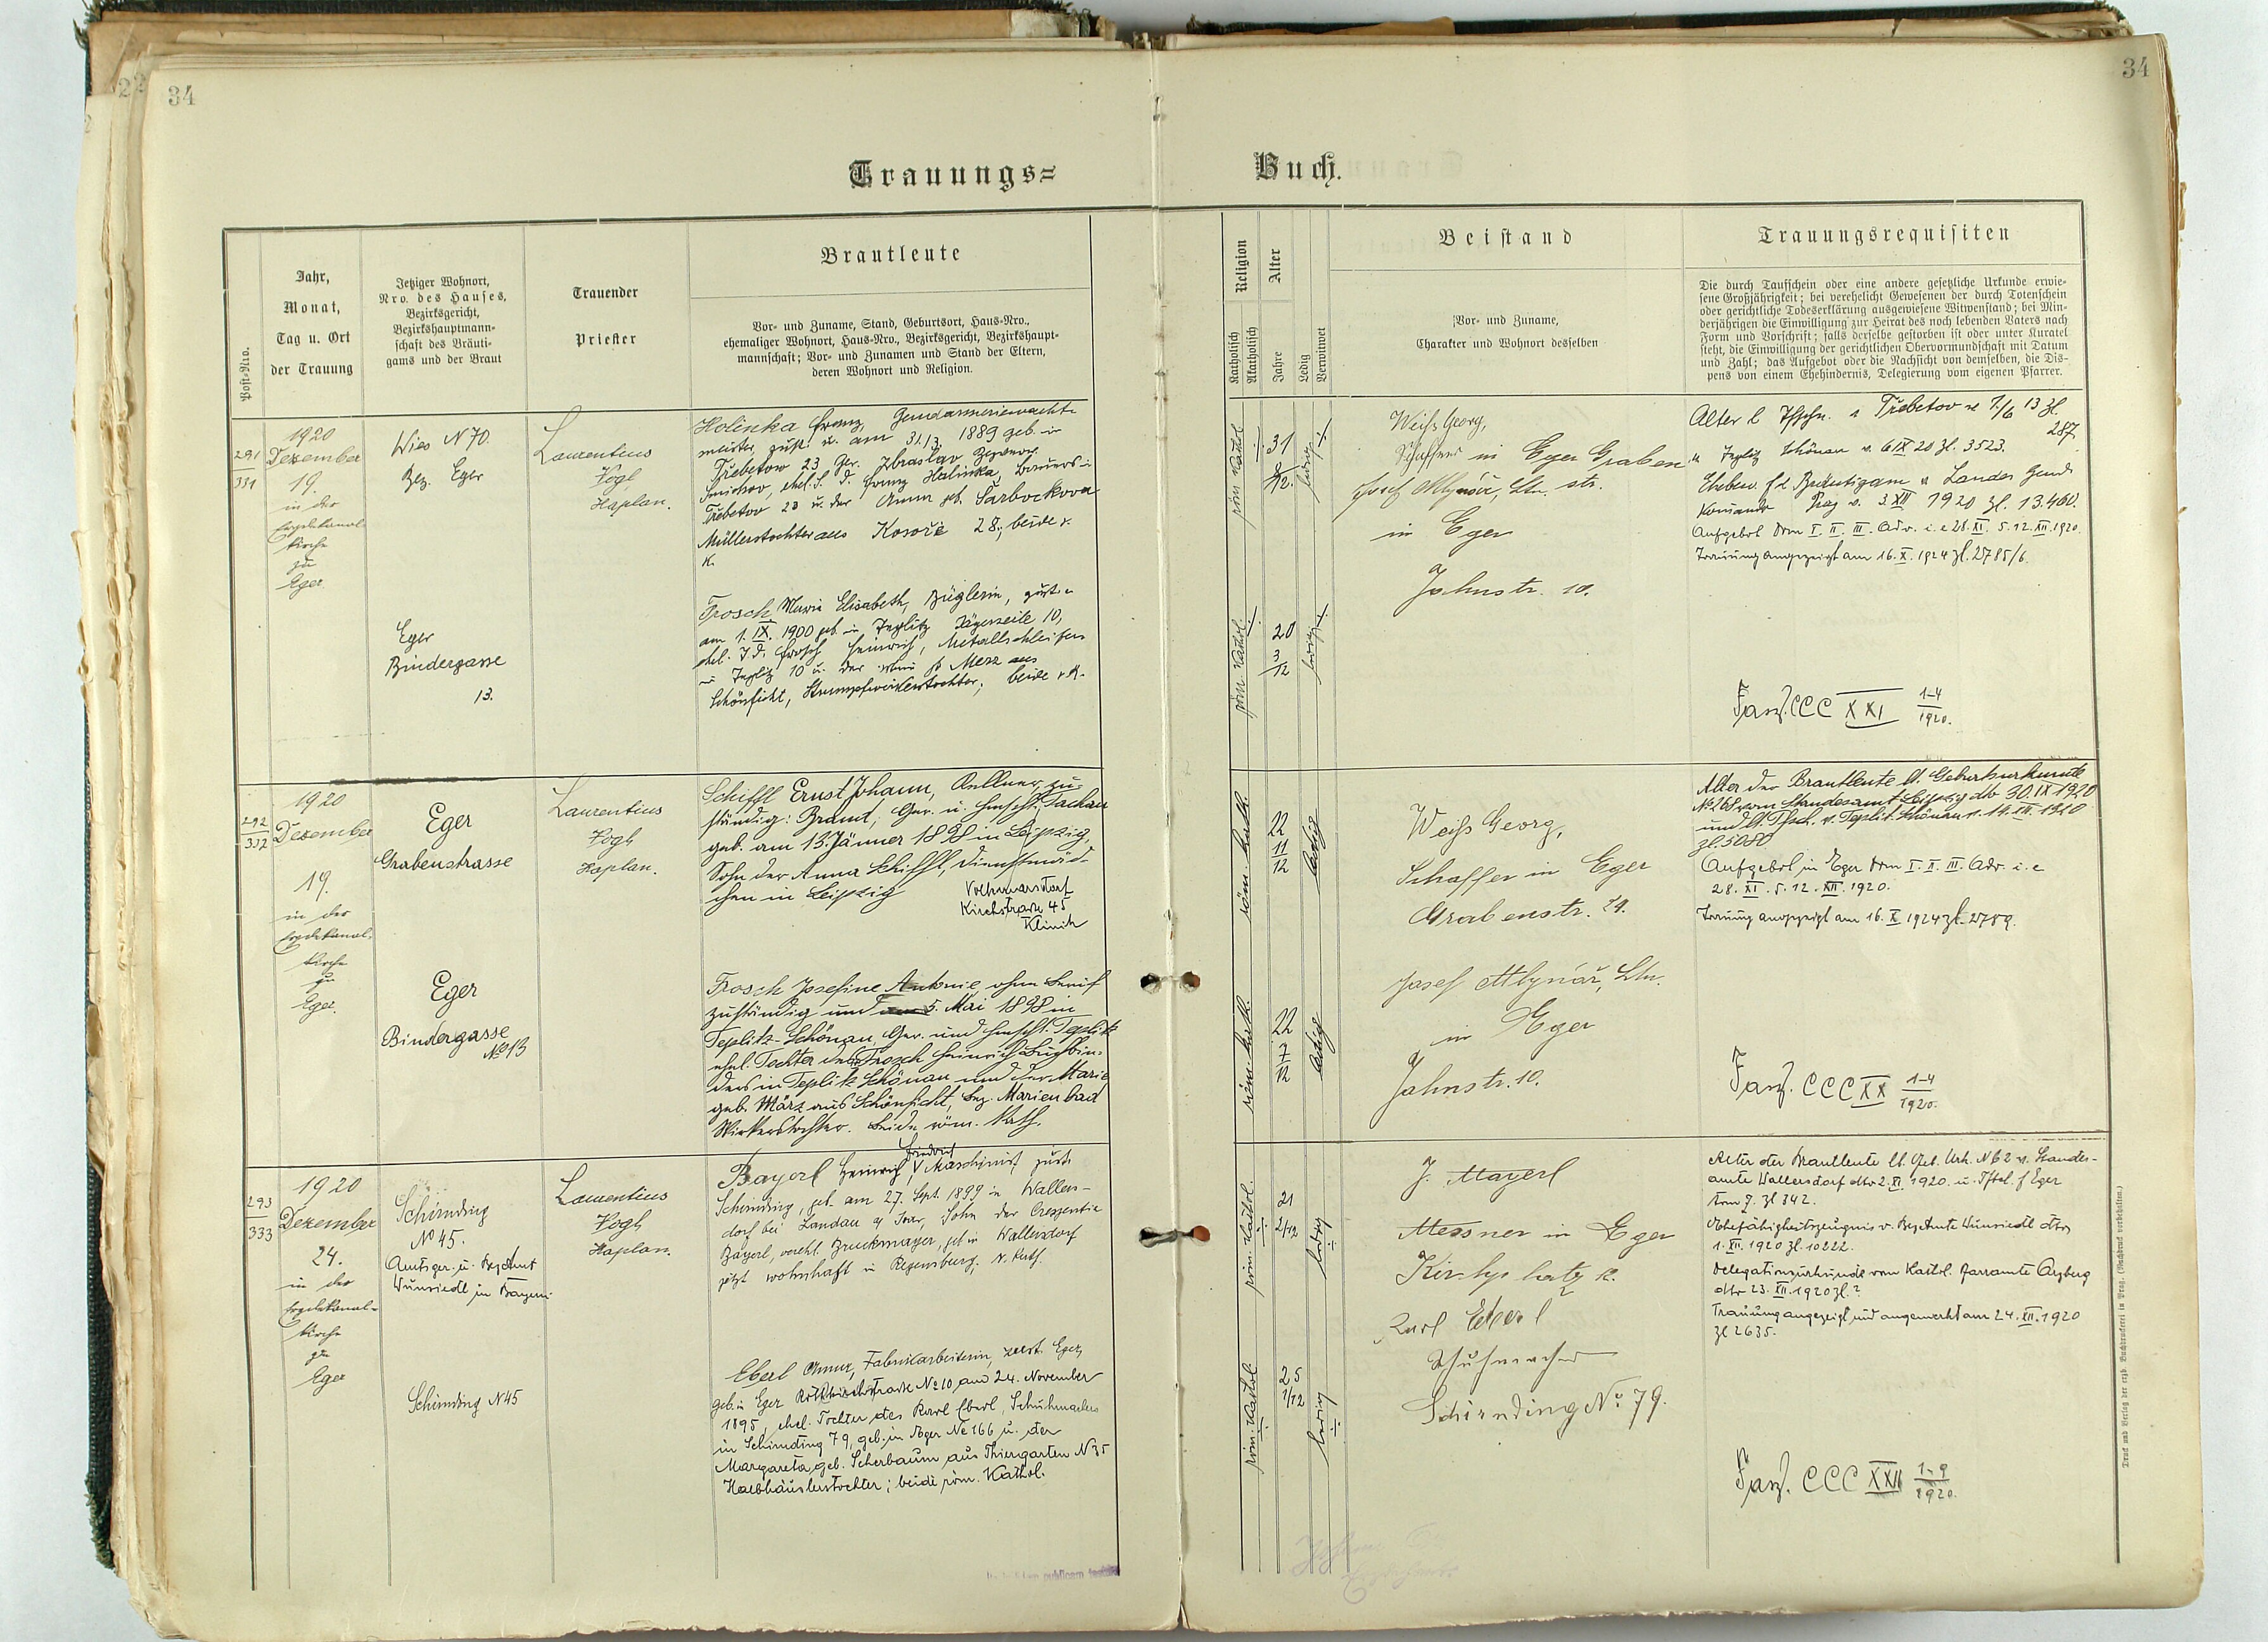 34
34
Trauungs=
Buch.
Post-Nro.
Jahr,
Monat,
Tag u. Ort
der Trauung
Jetziger Wohnort,
Nro. des Hauses,
Bezirksgericht,
Bezirkshauptmann-
schaft des Bräuti-
gams und der Braut
Trauender
Priester
Brautleute
Vor- und Zuname, Stand, Geburtsort, Haus-Nro.,
ehemaliger Wohnort, Haus-Nro., Bezirksgericht, Bezirkshaupt-
mannschaft; Vor- und Zunamen und Stand der Eltern,
deren Wohnort und Religion.
Religion
Katholisch
Akatholisch
Alter
Jahre
Ledig
Verwitwet
Beistand
Vor- und Zuname,
Charakter und Wohnort desselben
Trauungsrequisiten
Die durch Taufschein oder eine andere gesetzliche Urkunde erwie-
sene Großjährigkeit; bei verehelicht Gewesenen der durch Totenschein
oder gerichtliche Todeserklärung ausgewiesene Witwenstand; bei Min-
derjährigen die Einwilligung zur Heirat des noch lebenden Vaters nach
Form und Vorschrift; falls derselbe gestorben ist oder unter Kuratel
steht, die Einwilligung der gerichtlichen Obervormundschaft mit Datum
und Zahl; das Aufgebot oder die Nachsicht von demselben, die Dis-
pens von einem Ehehindernis, Delegierung vom eigenen Pfarrer.
291
331
1920
Dezember
19.
in der
Erzdekanal
kirche
zu
Eger.
Wies N 70.
Bez. Eger
Laurentius
Vogl,
Kaplan.
Holinka Franz, Gendarmeriewacht-
meister, zust. u. am 31./3. 1889 geb. in
Třebotov 23, Ger. Zbraslav
Smichov, ehel. S. d. Franz Holinka, Bauers in
Třebotov 23 u. der Anna geb. Šarbochova
Müllerstochter aus Kosoře 28; beide r.
k.
Eger
Bindergasse
13.
Frosch Marie Elisabeth, Büglerin, zust. u
am 1. IX. 1900 geb. in Teplitz 10,
ehel. T. d. Frosch Heinrich, Metallschleifers
in Teplitz 10 u. der geb. Merz aus
Schönficht, Strumpfwirkerstochter; beide r. k.
röm. kathol.
31
8/12.
ledig
röm. kathol.
20
3
12
ledig
Weiß Georg,
Schaffner in Eger Graben
Josef Mlynář, Ltn. str.
in Eger
Jahnstr. 10.
Alter l. Tfschn. v. Třebotov v. 7./6 13 Zl.
287
" Teplitz Schönau v. 6 IX 20 Zl. 3523.
Ehebew. f. d. Bräutigam v. Landes Gend.
Komando Prag v. 3. XII 1920 Zl. 13.460.
Aufgebot Dom I. II. III. Adv. i. e 28. XI. 5. 12. XII. 1920.
Trauung angezeigt am 16. X. 1924 Zl. 2785/6.
Fasz. CCC XXI 1-4
1920.
292
332
1920
Dezember
19.
in der
Erzdekanal-
kirche
zu
Eger.
Eger
Grabenstrasse
Laurentius
Vogl,
Kaplan.
Schiffl Ernst Johann, Kellner, zu-
ständig: Bramt, Ger. u. Hmschft. Tachau
geb. am 13. Jänner 1898 in Leipzig,
Sohn der Anna Schiffl, Dienstmäd-
chen in Leipzig
Volkmarsdorf
Kirchstrasse 45
Klinik
Eger
Bindergasse
No 13
Frosch Josefine Antonie ohne Beruf
zuständig und 5. Mai 1898 in
Teplitz-Schönau, Ger. und Hmschft. Teplitz
ehel. Tochter des Frosch Heinrich Buchbin-
ders in Teplitz Schönau und der Marie
geb. März aus Schönficht, Bez. Marienbad
Wirkerstochter. Beide röm. kath.
röm. kath.
22
11
12
ledig
röm. kath.
22
7
12
ledig
Weiß Georg,
Schaffer in Eger
Grabenstr. 29.
Josef Mlynář, Ltn.
in Eger
Jahnstr. 10.
Alter der Brautleute lt. Geburtsurkunde
No 268 vom Standesamt Leipzig dto 30. IX 1920
und lt. Tfsch. v. Teplitz Schönau v. 14. XII. 1920
Zl. 5080
Aufgebot in Eger Dom I. II. III. Adv. i. e
28. XI. 5. 12. XII. 1920.
Trauung angezeigt am 16. X. 1924 Zl. 2789.
Fasz. CCC XX 1-4
1920.
293
333
1920
Dezember
24.
in der
Erzdekanal-
kirche
zu
Eger
Schirnding
No 45.
Amtsger. u. BezAmt
Wunsiedl in Bayern.
Laurentius
Vogl,
Kaplan.
Friedrich
Bayerl Heinrich V Maschinist zust.
Schirnding, geb. am 27. Sept. 1899 in Wallers-
dorf bei Landau a/ Isar, Sohn der Creszentia
Bayerl, verehl. Bruckmayer, geb in Wallersdorf
jetzt wohnhaft in Regensburg, r. kath.
Schirnding N 45
Eberl Anna, Fabriksarbeiterin, zust. Eger,
geb. in Eger No 10 am 24. November
1895, ehel. Tochter des Karl Eberl, Schuhmachers
in Schirnding 79, geb. in Eger No 166 u. der
Margareta geb. Scherbaum aus Thiergarten N 35
Halbhäuslerstochter; beide röm. kathol.
röm. kathol.
21
2/12
ledig
röm. kathol.
25
1/12
ledig
J. Mayerl
Messner in Eger
Kirchplatz 12.
Karl Eberl
Schuhmacher
Schirnding No 79.
Alter der Brautleute lt. Geb. Urk. N 62 v. Standes-
amte Wallersdorf dto 2. XI. 1920. u. Tfsch. f Eger
Tom J. Zl 342.
Ehefähigkeitszeugnis v. BezAmte Wunsiedl dto
1. XII. 1920 Zl. 10222.
Delegationsurkunde vom Kathol. Pfarramte Arzberg
dto 23. XII. 1920 Zl. ?
Trauung angezeigt und angemerkt am 24. XII. 1920
Zl 2635.
Fasz. CCC XXII 1-9
1920.
Druck und Verlag der erzb. Buchdruckerei in Prag. (Nachdruck vorbehalten.)